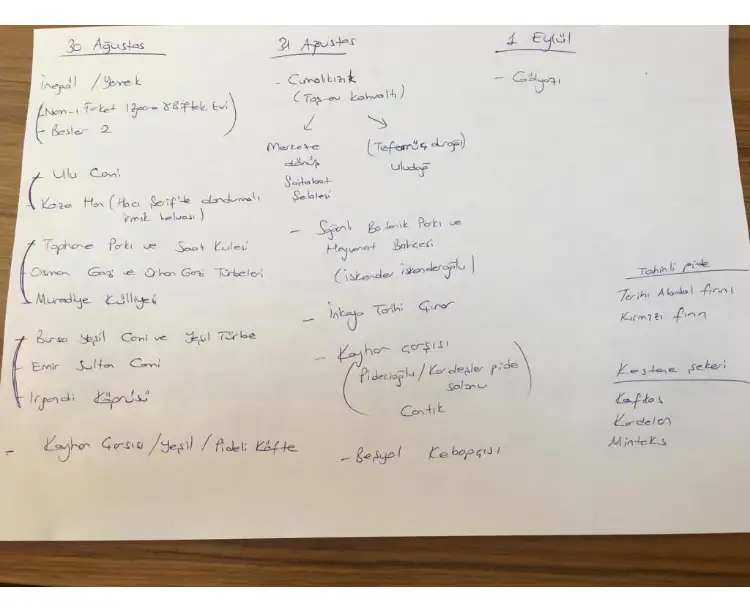 30 Ağustos
İnegöl / Yemek
Besler 2
Ulu Cami
Koza Han (Hacı Şerif'te dondurmalı
irmik helvası)
Tophane Parkı ve Saat Kulesi
Osman Gazi ve Orhan Gazi Türbeleri
Muradiye Külliyesi
Bursa Yeşil Cami ve Yeşil Türbe
Emir Sultan Cami
Irgandi Köprüsü
- Kayhan Çarşısı / Yeşil / Pideli Köfte
31 Ağustos
- Cumalıkızık
(Taş ev kahvaltı)
Merkeze
dönüş
Saitabat
Şelalesi
(Teferrüç durağı)
Uludağ
- Soğanlı Botanik Parkı ve
Hayvanat Bahçesi
(iskender iskenderoğlu)
- İnkaya Tarihi Çınar
- Kayhan Çarşısı
(Pidecioğlu / Kardeşler pide
salonu
Cantık)
- Beşyol Kebapçısı
1 Eylül
- Gölyazı
Tahinli pide
Tarihi Abdal fırını
Kırmızı fırın
Kestane şekeri
Kafkas
Kardelen